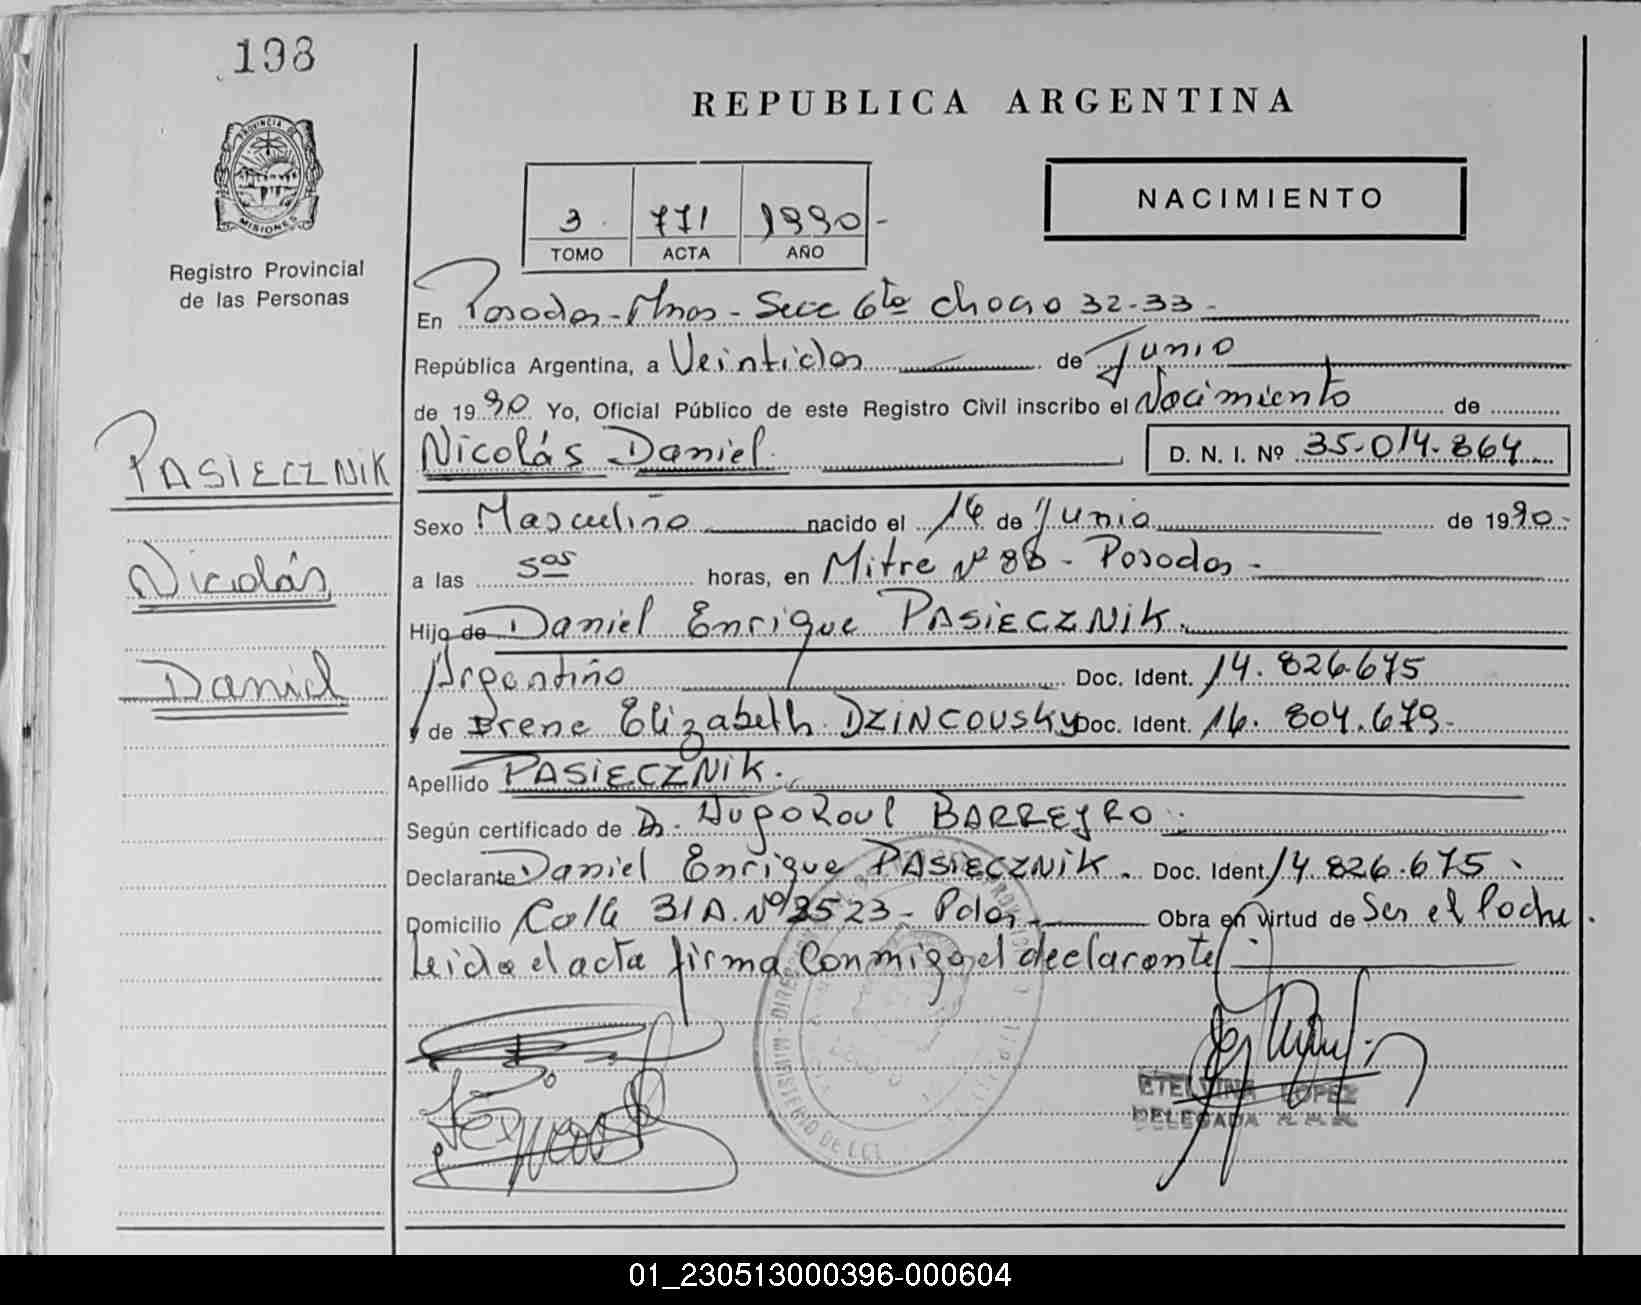 198
REPUBLICA ARGENTINA
PROVINCIA DE
MISIONES
Registro Provincial
de las Personas
NACIMIENTO
3 771 1990-
TOMO ACTA AÑO
En Posadas-Mnes-Secc 6ta chacra 32-33-
República Argentina, a Veintidos de Junio
de 1990 Yo, Oficial Público de este Registro Civil inscribo el Nacimiento de
Nicolás Daniel D. N. I. Nº 35-014-864
PASIECZNIK
Nicolás
Daniel
Sexo Masculino nacido el 14 de Junio de 1990-
a las 5as horas, en Mitre Nº 86 - Posadas -
Hijo de Daniel Enrique PASIECZNIK.
Argentino Doc. Ident. 14.826.675
y de Irene Elizabeth DZINCOUSKY Doc. Ident. 16.804.679-
Apellido PASIECZNIK.
Según certificado de Dr. Hugo Raul BARREYRO.
Declarante Daniel Enrique PASIECZNIK. Doc. Ident. 14.826.675.
Domicilio Calle 31A.Nº 3523- Pdas- Obra en virtud de Ser el Padre.
Leida el acta firma conmigo el declarante
ETELVINA LOPEZ
DELEGADA
01_230513000396-000604